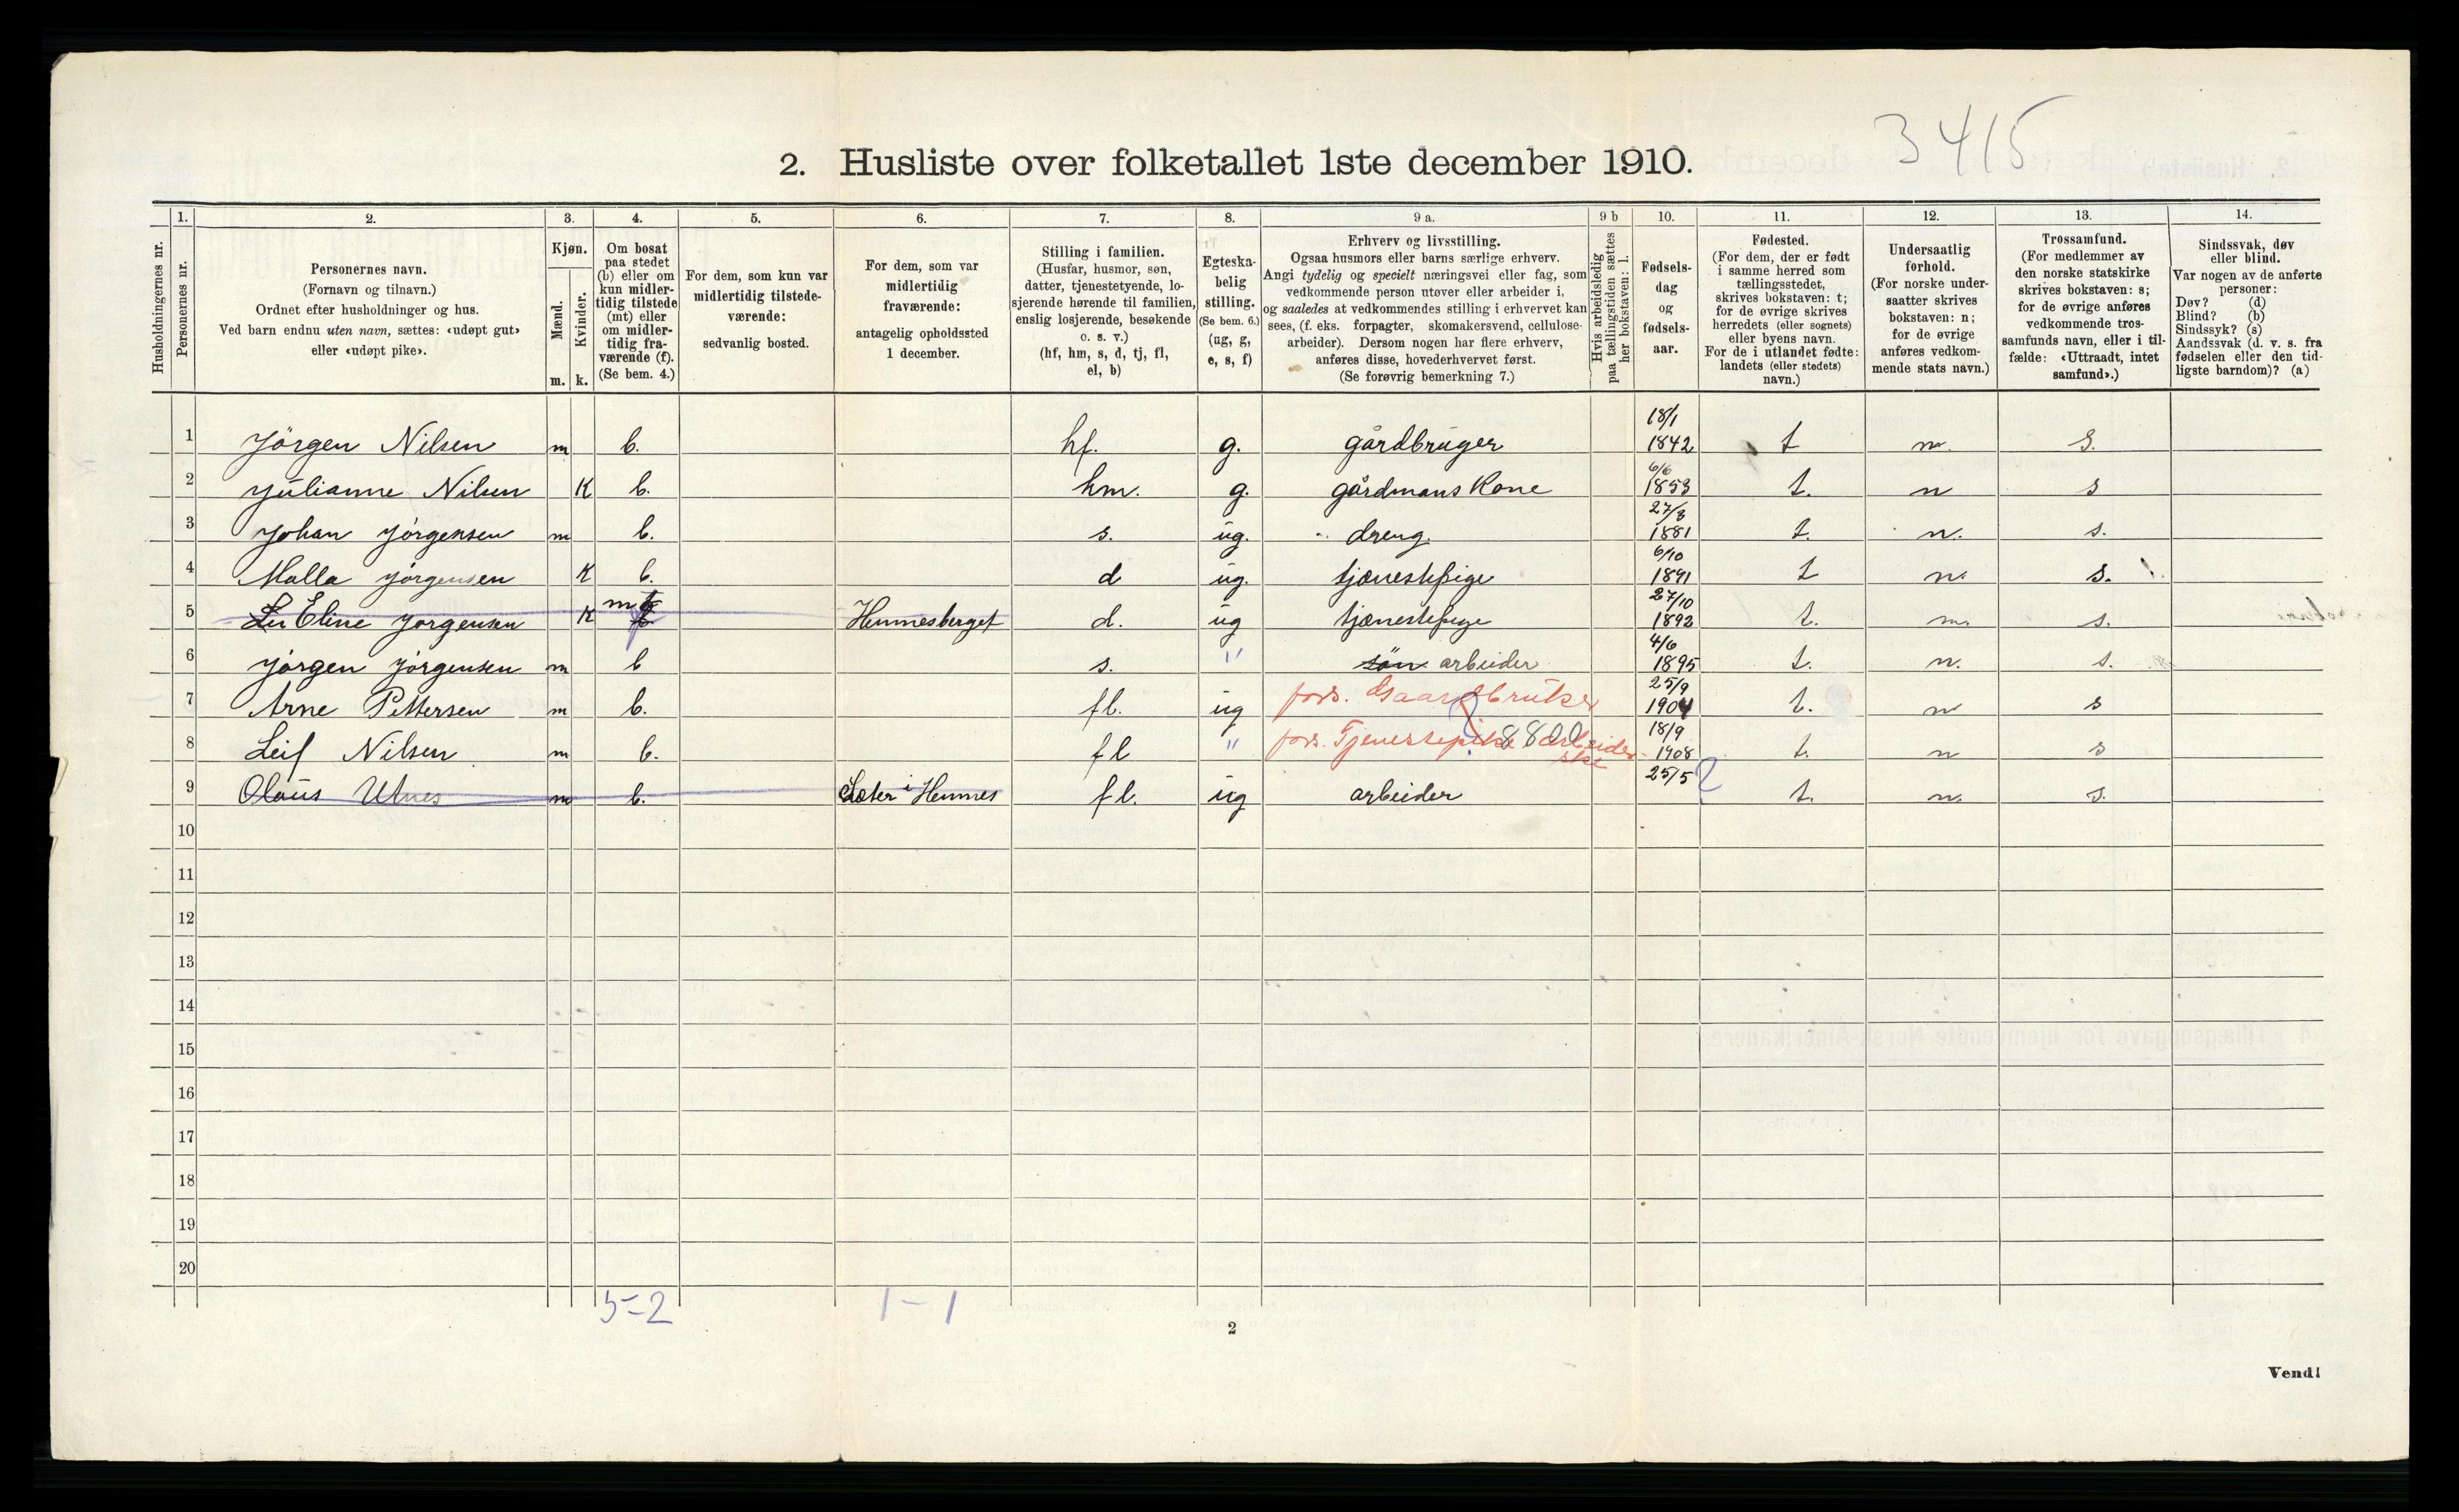 3415
2. Husliste over folketallet 1ste december 1910.
Husholdningernes nr.
1. Personernes nr.
2. Personernes navn.
(Fornavn og tilnavn.)
Ordnet efter husholdninger og hus.
Ved barn endnu uten navn, sættes: «udøpt gut»
eller «udøpt pike».
3. Kjøn.
Mænd. m.
Kvinder. k.
4. Om bosat
paa stedet
(b) eller om
kun midler-
tidig tilstede
(mt) eller
om midler-
tidig fra-
værende (f).
(Se bem. 4.)
5. For dem, som kun var
midlertidig tilstede-
værende:
sedvanlig bosted.
6. For dem, som var
midlertidig
fraværende:
antagelig opholdssted
1 december.
7. Stilling i familien.
(Husfar, husmor, søn,
datter, tjenestetyende, lo-
sjerende hørende til familien,
enslig losjerende, besøkende
o. s. v.)
(hf, hm, s, d, tj, fl,
el, b)
8. Egteska-
belig
stilling.
(Se bem. 6.)
(ug, g,
e, s, f)
9 a. Erhverv og livsstilling.
Ogsaa husmors eller barns særlige erhverv.
Angi tydelig og specielt næringsvei eller fag, som
vedkommende person utøver eller arbeider i,
og saaledes at vedkommendes stilling i erhvervet kan
sees, (f. eks. forpagter, skomakersvend, cellulose-
arbeider). Dersom nogen har flere erhverv,
anføres disse, hovederhvervet først.
(Se forøvrig bemerkning 7.)
9 b Hvis arbeidsledig
paa tællingstiden sættes
her bokstaven: l.
10. Fødsels-
dag
og
fødsels-
aar.
11. Fødested.
(For dem, der er født
i samme herred som
tællingsstedet,
skrives bokstaven: t;
for de øvrige skrives
herredets (eller sognets)
eller byens navn.
For de i utlandet fødte:
landets (eller stedets)
navn.)
12. Undersaatlig
forhold.
(For norske under-
saatter skrives
bokstaven: n;
for de øvrige
anføres vedkom-
mende stats navn.)
13. Trossamfund.
(For medlemmer av
den norske statskirke
skrives bokstaven: s;
for de øvrige anføres
vedkommende tros-
samfunds navn, eller i til-
fælde: «Uttraadt, intet
samfund».)
14. Sindssvak, døv
eller blind.
Var nogen av de anførte
personer:
Døv? (d)
Blind? (b)
Sindssyk? (s)
Aandssvak (d. v. s. fra
fødselen eller den tid-
ligste barndom)? (a)
1 Jörgen Nilsen m b. hf. g. gårdbruger 18/1 1842 t n. s.
2 Julianne Nilsen K b. hm. g. gårdmans Kone 6/6 1853 t. n s
3 Johan Jörgensen m b. s. ug. dreng. 27/3 1881 t. n. s.
4 Malla Jörgensen K b. d ug. tjænestepige 6/10 1891 t n. s.
5 Eline Jorgensen K Hemnesberget d. ug tjænestepige 27/10 1892 t. n. s.
6 Jörgen Jörgensen m b s. " søn arbeider 4/6 1895 t. n. s.
7 Arne Pettersen m b. fl. ug fors. Gaardbruker 25/9 1904 t. n s
8 Leif Nilsen m b. fl " fors. Tjenestepike 8800 arbeiderske 18/9 1908 t. n s
9 Olaus Utnes m b. Sæter i Hemnes fl. ug arbeider 25/5 ? t. n. s.
10
11
12
13
14
15
16
17
18
19
20
5-2
1-1
2
Vend!